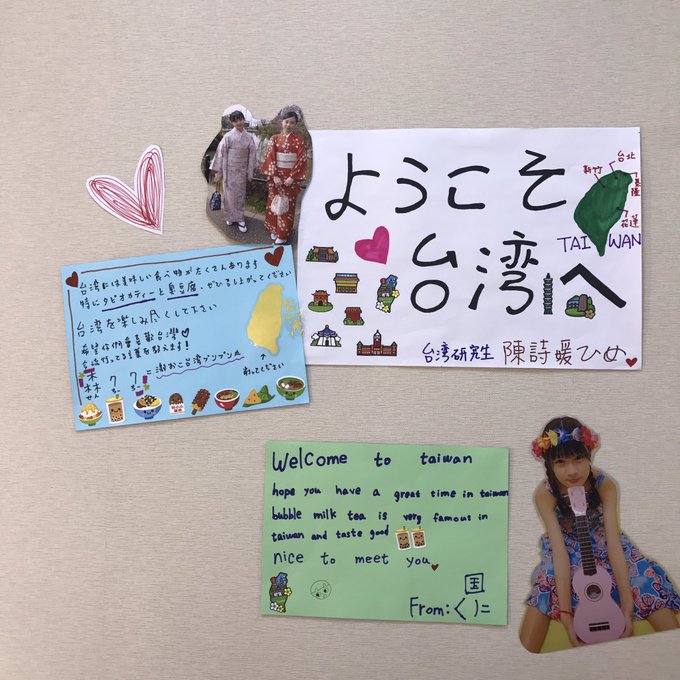 ようこそ
台湾へ
台北
新竹
基隆
花蓮
TAIWAN
台湾研究生 陳詩媛ひめ
台湾には美味しい食べ物がたくさんあります
特にタピオカティーと臭豆腐、ぜひ召し上がってください
台湾を楽しみ尽くして下さい
希望你們會喜歡台灣
を教えます!
せん
=激おこ台湾プンプン丸
↑
さわってください
Welcome to taiwan
hope you have a great time in taiwan
bubble milk tea is very famous in
taiwan and taste good
nice to meet you
国
From:く)=